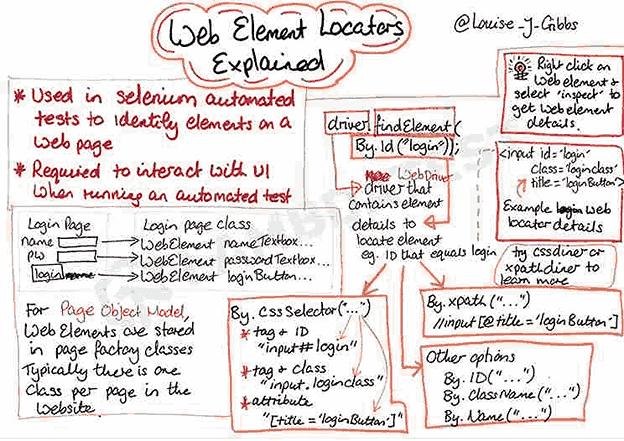 Web Element Locators
Explained
@Louise_J_Gibbs
* Used in selenium automated
tests to identify elements on a
web page
* Required to interact with UI
when running an automated test
Login Page
name
pw
login
Login page class
WebElement nameTextbox...
WebElement passwordTextbox...
WebElement loginButton...
For Page Object Model,
Web Elements are stored
in page factory classes
Typically there is one
class per page in the
website
driver.findElement(
By.Id("login"));
WebDriver
driver that
contains element
details to
locate element
eg. ID that equals login
Right click on
web element &
select 'inspect' to
get web element
details.
<input id='login'
class='loginclass'
title='loginButton'>
Example web
locator details
try cssdiner or
xpathdiner to
learn more
By.CssSelector("...")
* tag & ID
"input#login"
* tag & class
"input.loginclass"
* attribute
"[title='loginButton']"
By.xpath("...")
//input[@title='loginButton']
Other options
By.ID("...")
By.ClassName("...")
By.Name("...")